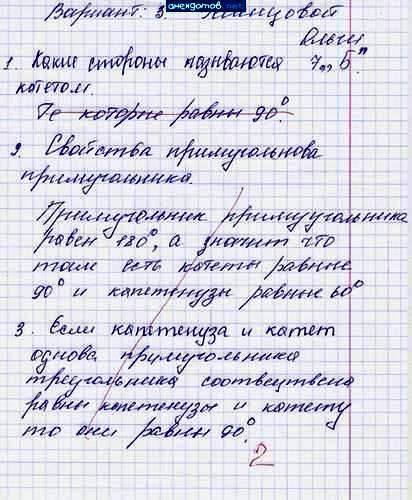 анекдотов.net
Вариант: 3.
Ольги
1. Какие стороны называются 7 „Б"
котетом.
Те которые равны 90°.
2. Свойства примугольнова
примугольника.
Примугольник примуугольника
равен 180°, а значит что
там есть котеты равные
90° и капетенузы равные 60°
3. Если капетенуза и катет
однова примугольника
треугольника соотвеутвена
равны капетенузы и катету
то они равны 90°.
2